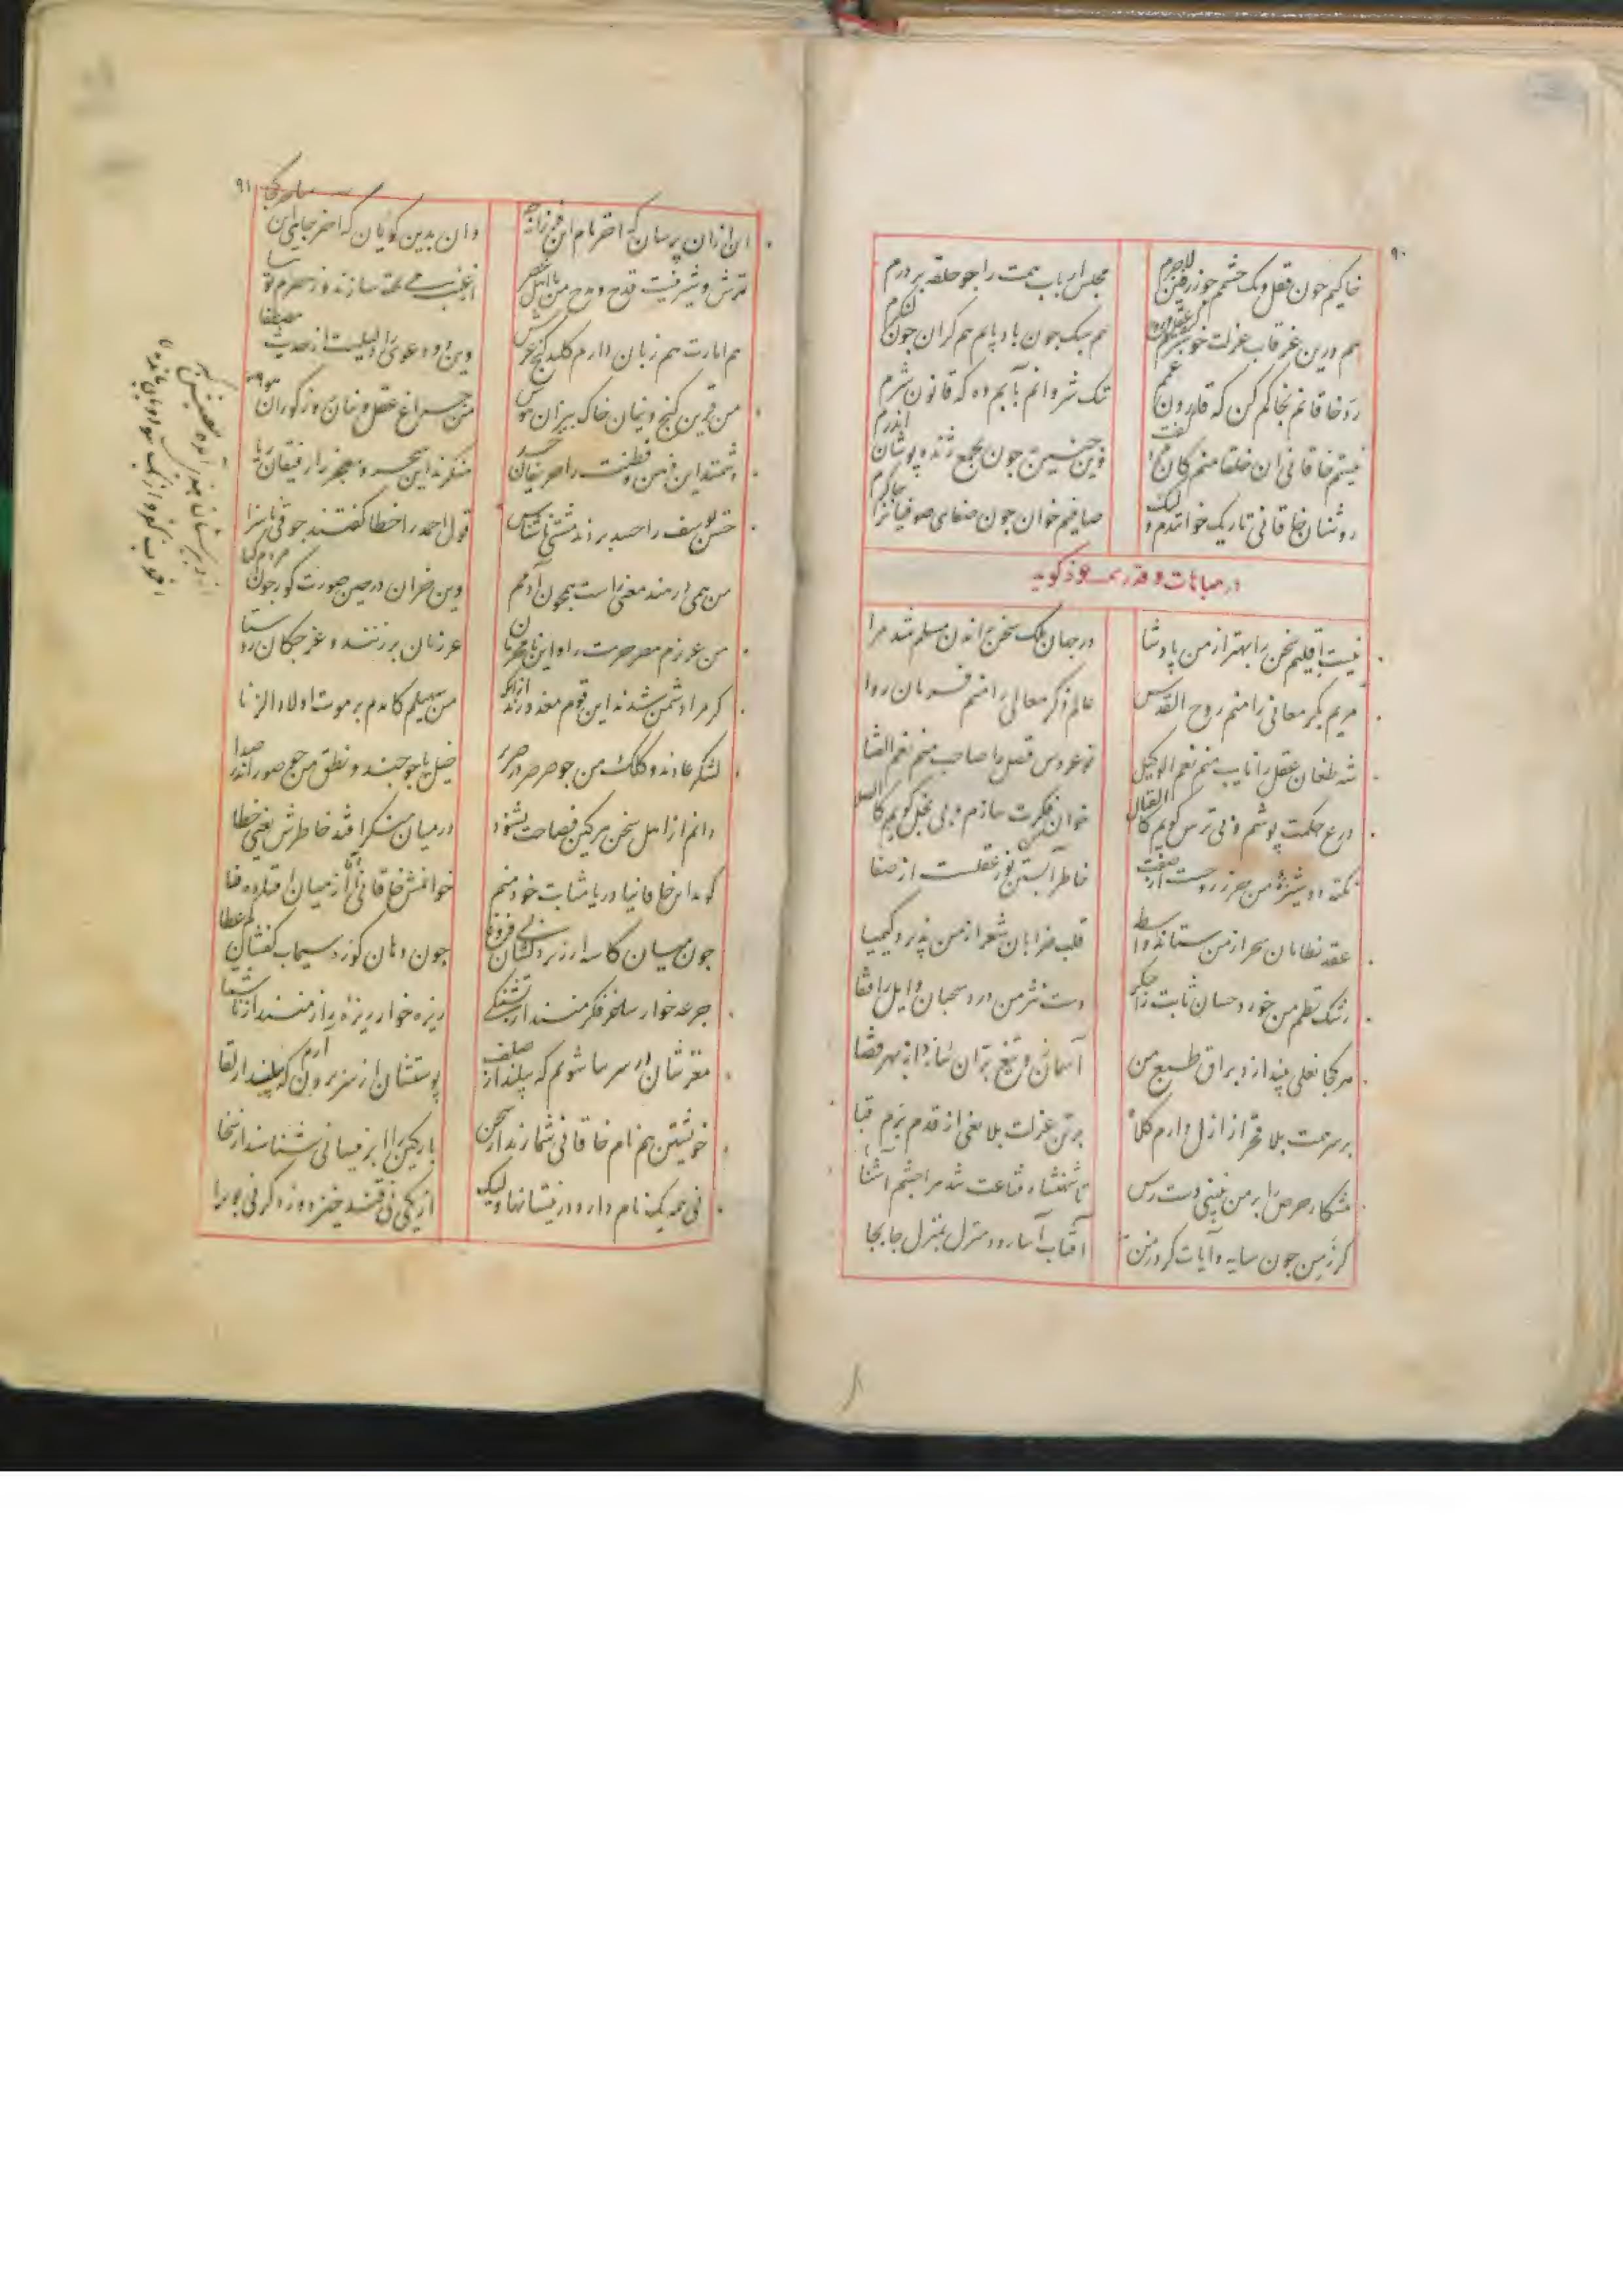 ۹۰
خاکیم چون قفل و یک چشمم چو زرفین لاجرم مجلس ارباب همت را چو حلقه بر درم
هم درین غرقاب عزلت خوشترم هم سبک چون بادبانم هم گران چون لنگرم
رد خاقانم بخاکم کن که قارون غمم تنگ شروانم بآبم ده که قانون شرم
نیستم خاقانی آن خلقا منم کان مرد گفت وین چنین چون مجمع ژنده پوشان اندرم
روشنان خاقانی تاریک خوانندم ولیک صافیم خوان چون صفای صوفیانرا چاکرم
در مباهات و قدر خود گوید
نیست اقلیم سخن را بهتر از من پادشا در جهان ملک سخن راندن مسلم شد مرا
مریم بکر معانی را منم روح القدس عالم ذکر معالی را منم فرمان روا
شه طغان عقل را نایب منم نعم الوکیل نوعروس فضل را صاحب منم نعم الفتا
درع حکمت پوشم و بی ترس گویم کالقتال خوان فکرت سازم و بی بخل گویم کالصلا
نکته دوشیزۀ من حرز روحست از صفت خاطر آبستن نور عقلست از صفا
عقد نظامان سحر از من ستاند واسطه قلب ضرابان شعر از من پذیرد کیمیا
رشک نظم من خورد حسان ثابت را جگر دست نثر من درد سحبان وایل را قفا
هر کجا نعلی بیندازد براق طبع من آسمان زو تیغ بران سازد از بهر قضا
بر سر همت بلا فخر از ازل دارم کلاه بر تن عزلت بلا بغی از قدم برم قبا
شکار حرص را بر من نبینی دست رس تا شهنشاه قناعت شد مرا چشم آشنا
گر ز من چون سایه و آیات گرد من آفتاب آسا رود منزل بمنزل جا بجا
۹۱
این ازان پرسان که آخر نام این فرزانه چه وان بدین گویان که آخر جای این ساحر کجا
ترش و شیرینست قدح و مدح من با اهل عصر از عنب می پخته سازند و ز حصرم توتیا
هم امارت هم زبان دارم کلید گنج عرش وین دو دعوی را دلیلست از حدیث مصطفا
من قرین گنج و اینان خاک بیزان هوس من چراغ عقل و اینان روز کوران هوا
دشمنند این ذهن و فطنت را حریفان حسد منکرند این سحر و معجز را رفیقان ریا
حسن یوسف را حسد بردند مشتی ناسپاس قول احمد را خطا گفتند جوقی ناسزا
من همی در هند معنی راست همچون آدمم وین خران در چین صورت کوژ چون مردم گیا
من عزیزم مصر حرمت را و این نامحرمان غرزنان برزنند و غرچکان روستا
گر مرا دشمن شدند این قوم معذورند ازانک من سهیلم کامدم بر موت اولاد الزنا
لشکر عادند و کلک من چو صرصر در صریر خیل یاجوجند و نطق من چو صور اندر صدا
دانم از اهل سخن هر کین فصاحت بشنود در میان منکر افتد خاطرش یعنی خطا
گوید این خاقانیا دریا مثابت خود منم خوانمش خاقانی اما از میان افتاده قا
چون میان کاسه ارزیز دلشان بی فروغ چون دهان کوزه سیماب کفشان کم عطا
جرعه خوار ساغر فکر منند از تشنگی ریزه خوار ریزه راز منند از ناشتا
مغزشان در سر بیاشوبم که پیلند از صلف پوستشان از سر برون آرم که پیسند از لقا
خویشتن هم نام خاقانی شمارند از سخن پارگین را ابر نیسانی شناسند از سخا
نی همه یک نام دارد در نیستانها ولیک از یکی نی قند خیزد وز دگر نی بوریا